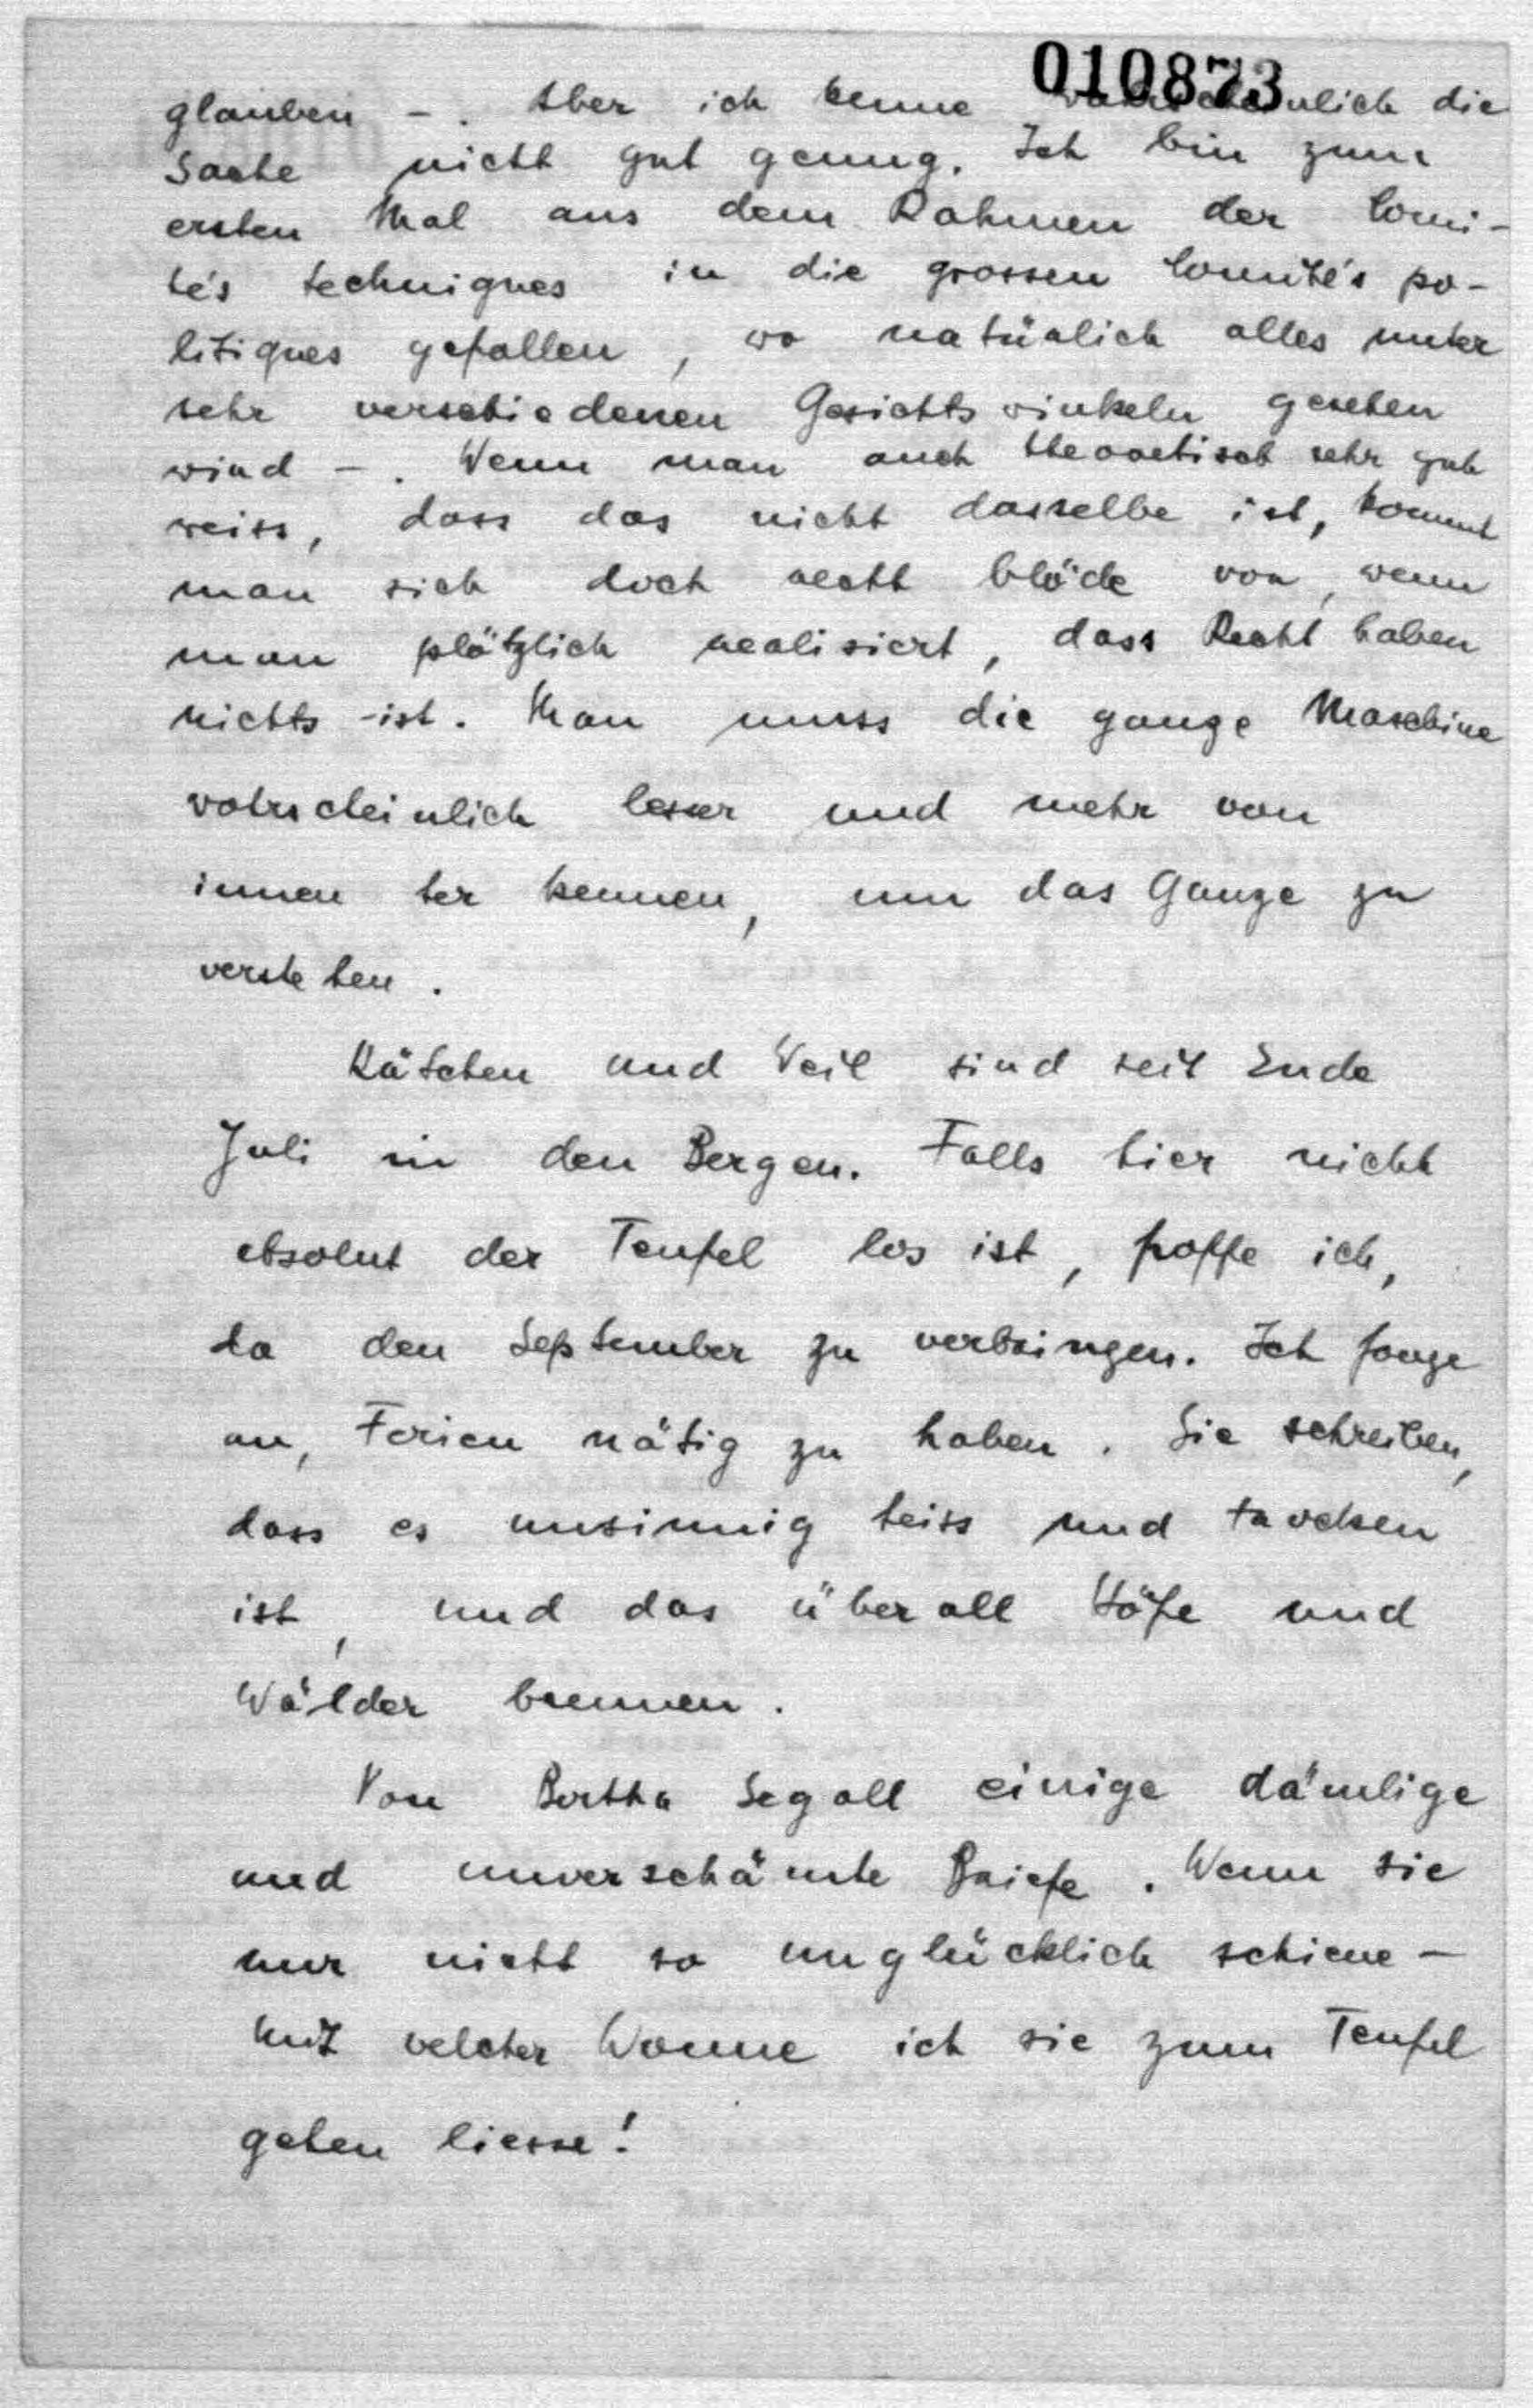 010873
glauben -. Aber ich kenne wahrscheinlich die
Sache nicht gut genug. Ich bin zum
ersten Mal aus dem Rahmen der Comi-
té's techniques in die grossen Comité's po-
litiques gefallen, wo natürlich alles unter
sehr verschiedenen Gesichtswinkeln gesehen
wird -. Wenn man auch theoretisch sehr gut
weiss, dass das nicht dasselbe ist, kommt
man sich doch recht blöde vor, wenn
man plötzlich realisiert, dass Recht haben
nichts ist. Man muss die ganze Maschine
wahrscheinlich besser und mehr von
innen her kennen, um das Ganze zu
verstehen.
Kätchen und Weil sind seit Ende
Juli in den Bergen. Falls hier nicht
absolut der Teufel los ist, hoffe ich,
da den September zu verbringen. Ich fange
an, Ferien nötig zu haben. Sie schreiben,
dass es unsinnig heiss und trocken
ist, und das überall Höfe und
Wälder brennen.
Von Bertha Segall einige dämlige
und unverschämte Briefe. Wenn sie
nur nicht so unglücklich schiene -
mit welcher Wonne ich sie zum Teufel
gehen liesse!